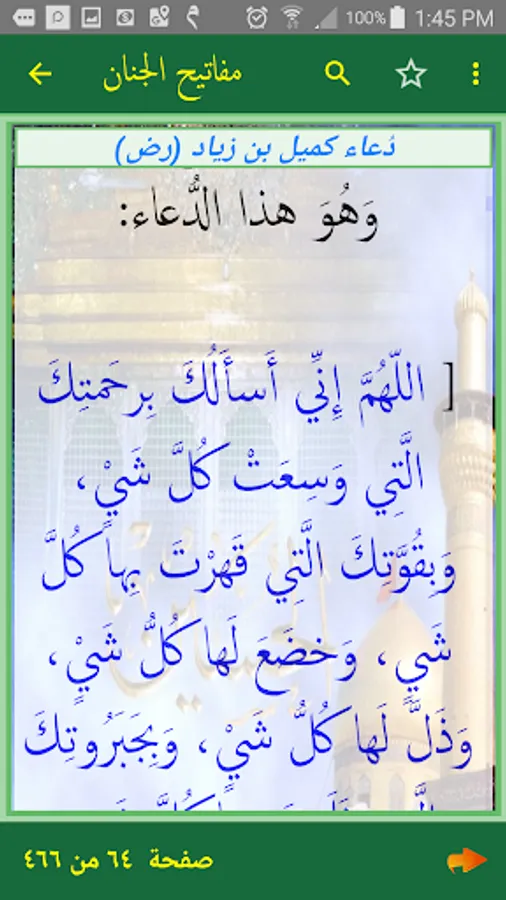 100% 1:45 PM
مفاتيح الجنان
دُعاء كميل بن زياد (رض)
وَهُوَ هذا الدُّعاء:
[ اللّهُمَّ إِنِّي أَسأَلُكَ بِرحَمتِكَ
الَّتِي وَسِعَتْ كُلَّ شَيْءٍ،
وَبِقُوَّتِكَ الَّتِي قَهَرْتَ بِها كُلَّ
شَيءٍ، وَخضَعَ لَها كُلُّ شَيْءٍ،
وَذَلَّ لَها كُلُّ شَيْءٍ، وَبِجَبَرُوتِكَ
صفحة ٦٤ من ٤٦٦